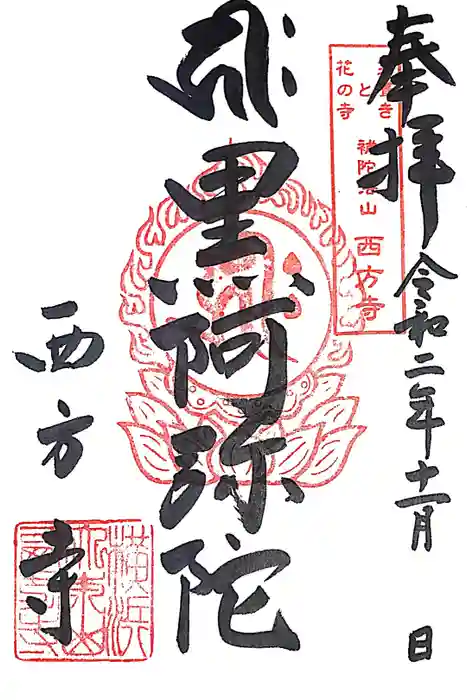 奉拝
令和二年十一月 日
花の寺
補陀洛山 西方寺
黒阿弥陀
西方寺
横浜